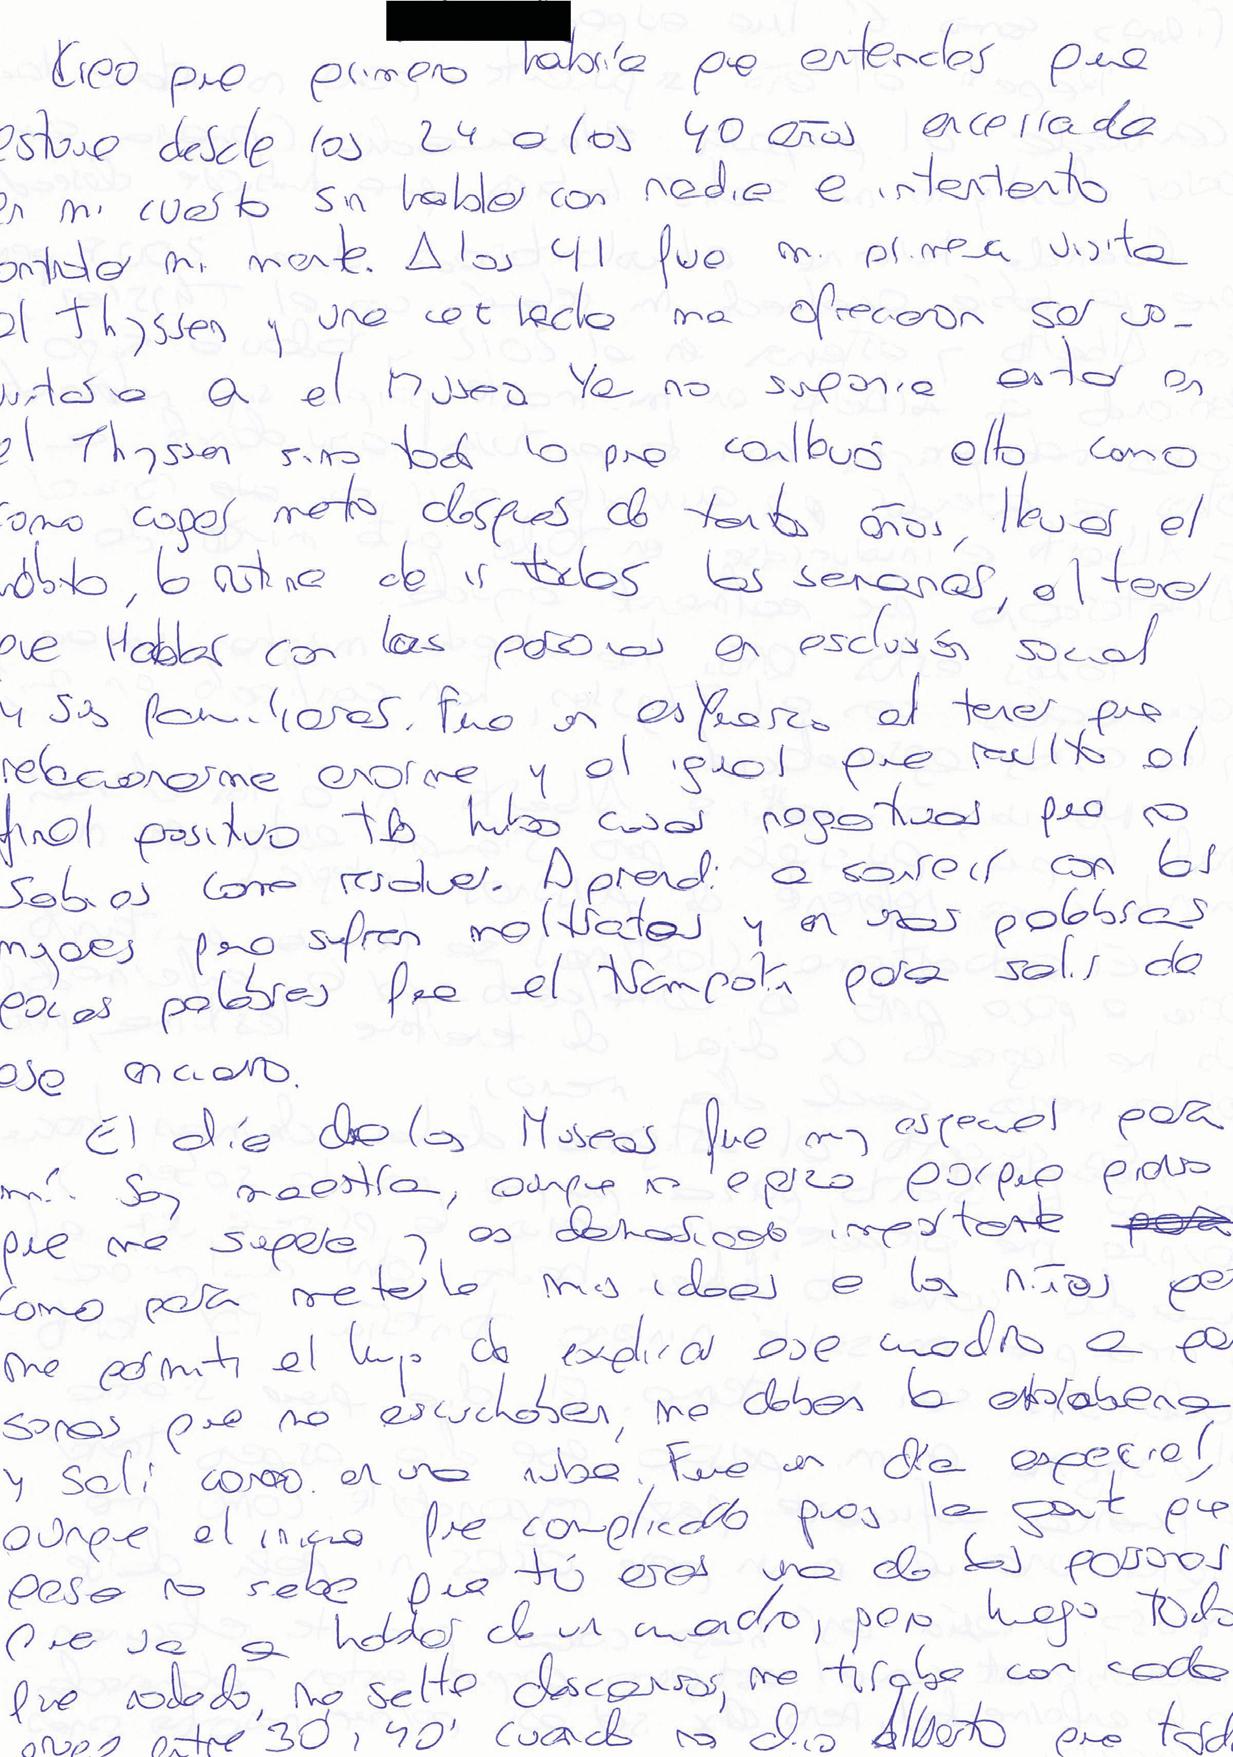 Creo que primero habría que entender que
estuve desde los 24 a los 40 años encerrada
en mi cuarto sin hablar con nadie e intentento
ontrolar mi mente. A los 41 fue mi primera visita
al Thyssen y una vez hecha me ofrecieron ser vo-
untaria a el Museo Ya no suponía estar en
el Thyssen sino todo lo que conllevó ello como
como coger metro después de tanto años, llevar el
hábito, la rutina de ir todas las semanas, el tener
que Hablar con las personas en exclusión social
y sus familiares. Fue un esfuerzo al tener que
relacionarme enorme y al igual que resulto al
final positivo tb hubo cosas negativas que no
sabías como resolver. Aprendí a sonreír con las
mujeres que sufren maltratos y en unas palabras
pocas palabras fue el trampolín para salir de
ese encierro.
El día de los Museos fue muy especial para
mí. Soy maestra, aunque no ejerzo porque pienso
que me supera y es demasiado importante para
como para meterle mis ideas a los niños pe
me permití el lujo de explicar ese cuadro a per
sonas que no escuchaban, me daban la enhorabuena
y salí como en una nube. Fue un día especial,
aunque el inicio fue complicado pues la gente que
pasa no sabe que tú eres una de las personas
que va a hablar de un cuadro, pero luego todo
fue rodado, me salté descansos, me tiraba con cada
grupo entre 30', 40' cuando nos dijo Alberto que